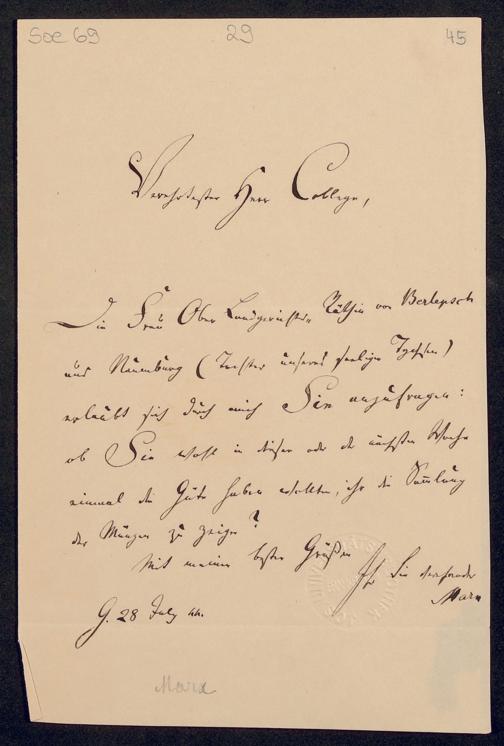 Soc 69 29 45
Verehrtester Herr College,
Die Frau Ober Landgerichts- Räthin von Berlepsch
aus Naumburg (Tochter unseres seeligen Tychsen)
erlaubt sich durch mich Sie anzufragen:
ob Sie wohl in dieser oder der nächsten Woche
einmal die Güte haben wollten, ihr die Samlung
der Münzen zu zeigen?
Mit meinen besten Grüßen
Ihr Sie verehrender
Marx
G. 28 July 44.
Marx